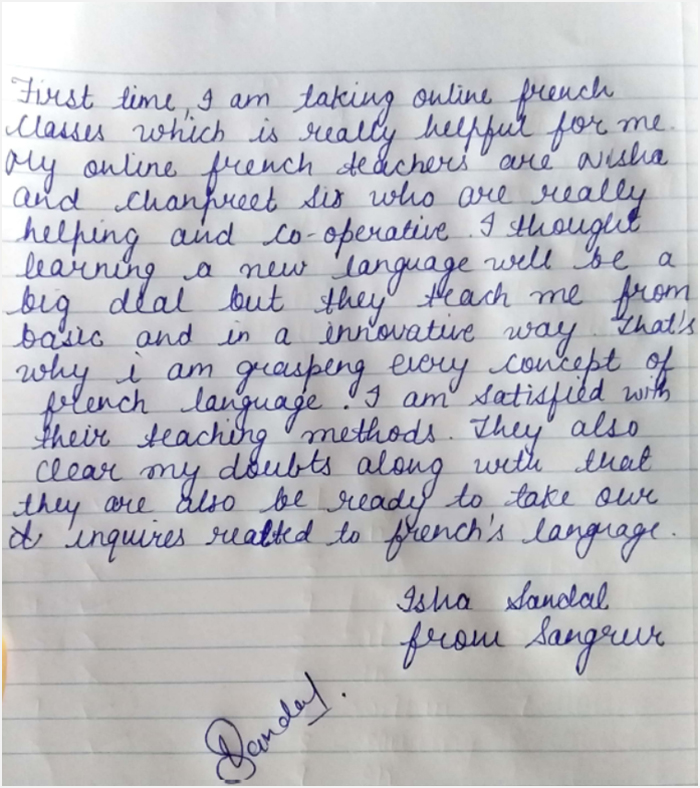 First time, I am taking online french
classes which is really helpful for me.
My online french teachers are Nisha
and Chanpreet Sir who are really
helping and co-operative. I thought
learning a new language will be a
big deal but they teach me from
basic and in a innovative way. That's
why i am graspeng every concept of
french language. I am satisfied with
their teaching methods. They also
clear my doubts along with that
they are also be ready to take our
inquires realted to french's language.
Isha Sandal
from Sangrur
Sandal.